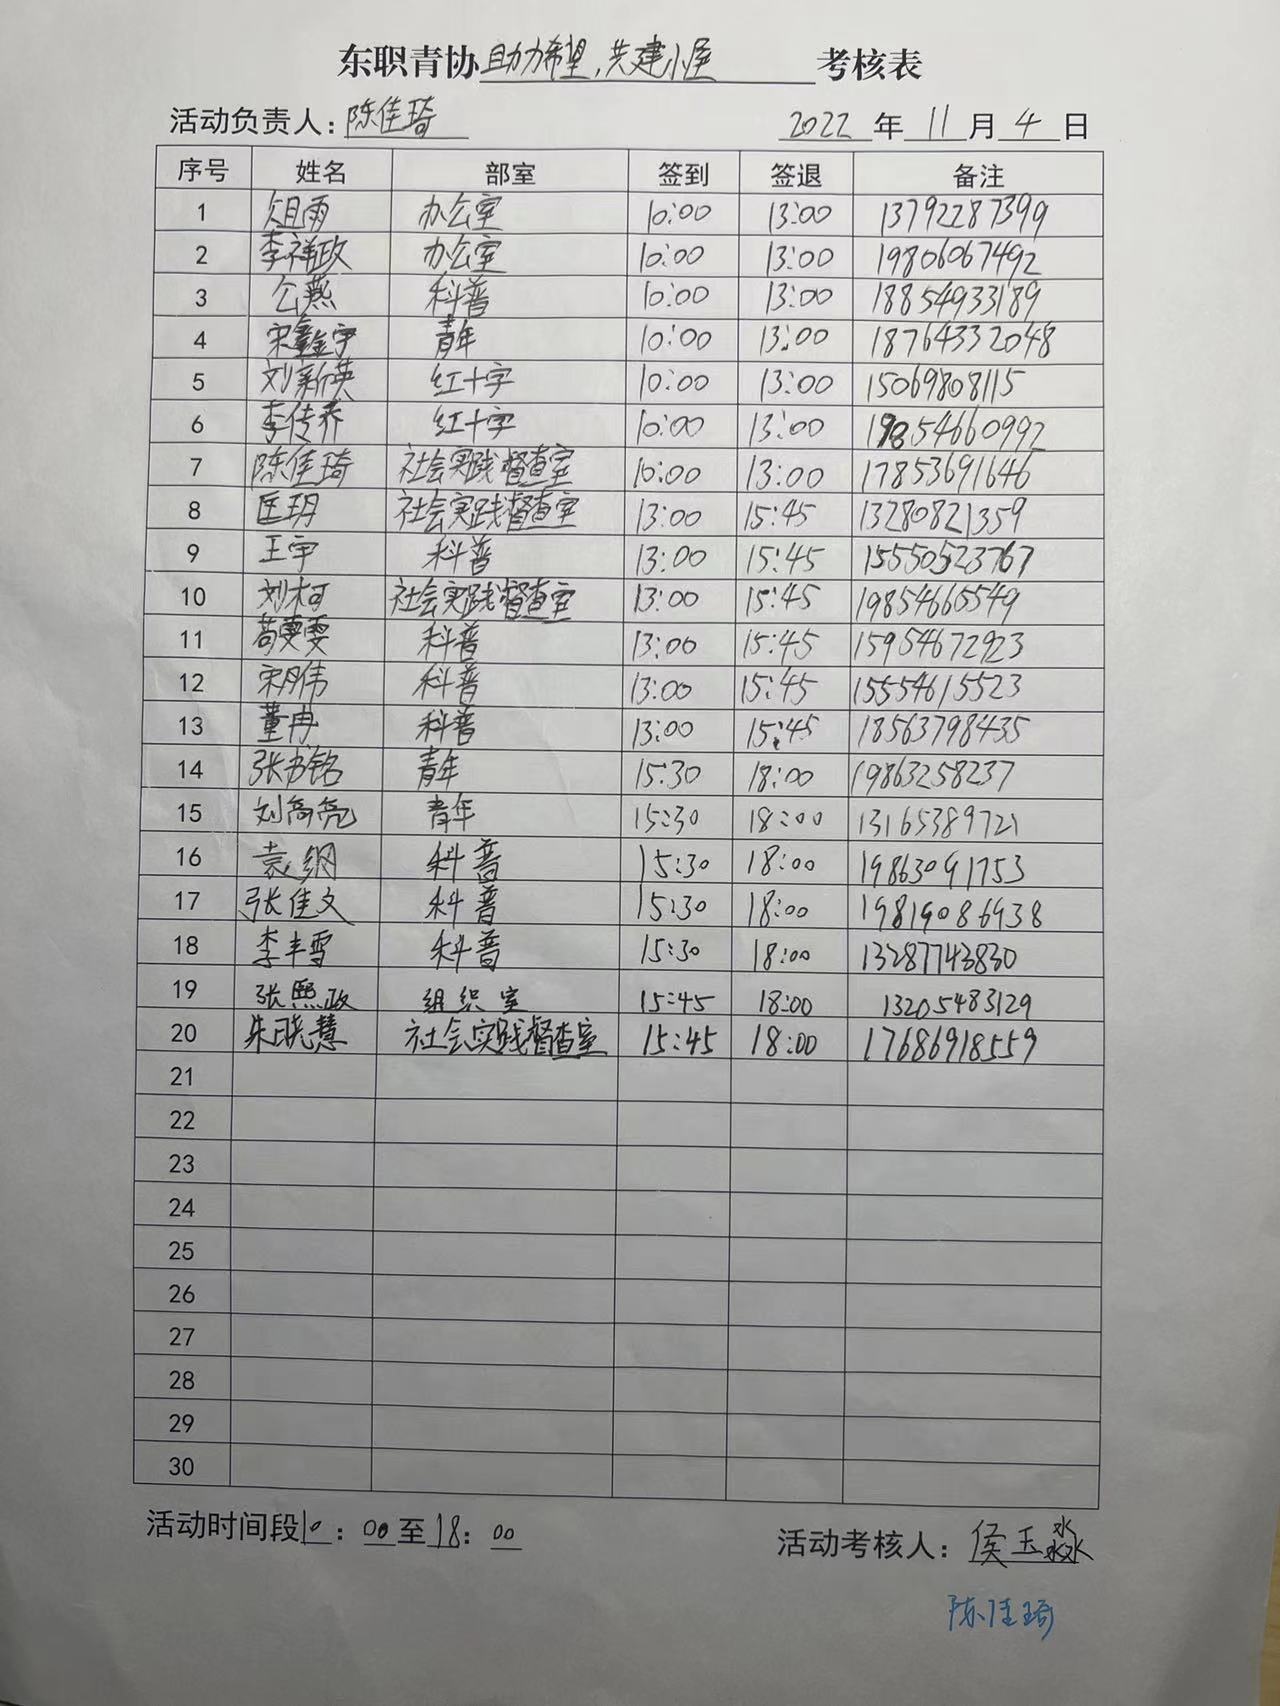 东职青协助力希望,共建小屋考核表
活动负责人:陈佳琦 2022年11月4日
序号 姓名 部室 签到 签退 备注
1 俎雨 办公室 10:00 13:00 13792287399
2 李祥政 办公室 10:00 13:00 19806067492
3 仝燕 科普 10:00 13:00 18854933189
4 宋鑫宇 青年 10:00 13:00 18764332048
5 刘新英 红十字 10:00 13:00 15069808115
6 李传乔 红十字 10:00 13:00 19854660992
7 陈佳琦 社会实践督查室 10:00 13:00 17853691646
8 匡玥 社会实践督查室 13:00 15:45 13280821359
9 王宇 科普 13:00 15:45 15550523767
10 刘柯 社会实践督查室 13:00 15:45 19854665549
11 科普 13:00 15:45 15954672923
12 宋朋伟 科普 13:00 15:45 15554615523
13 董冉 科普 13:00 15:45 18563798435
14 张书铭 青年 15:30 18:00 19863258237
15 刘高亮 青年 15:30 18:00 13165389721
16 袁纲 科普 15:30 18:00 19863091753
17 张佳文 科普 15:30 18:00 19819086938
18 李丰雪 科普 15:30 18:00 13287743830
19 张熙政 组织室 15:45 18:00 13205483129
20 朱晓慧 社会实践督查室 15:45 18:00 17686918559
21
22
23
24
25
26
27
28
29
30
活动时间段10:00至18:00 活动考核人:侯玉淼
陈佳琦